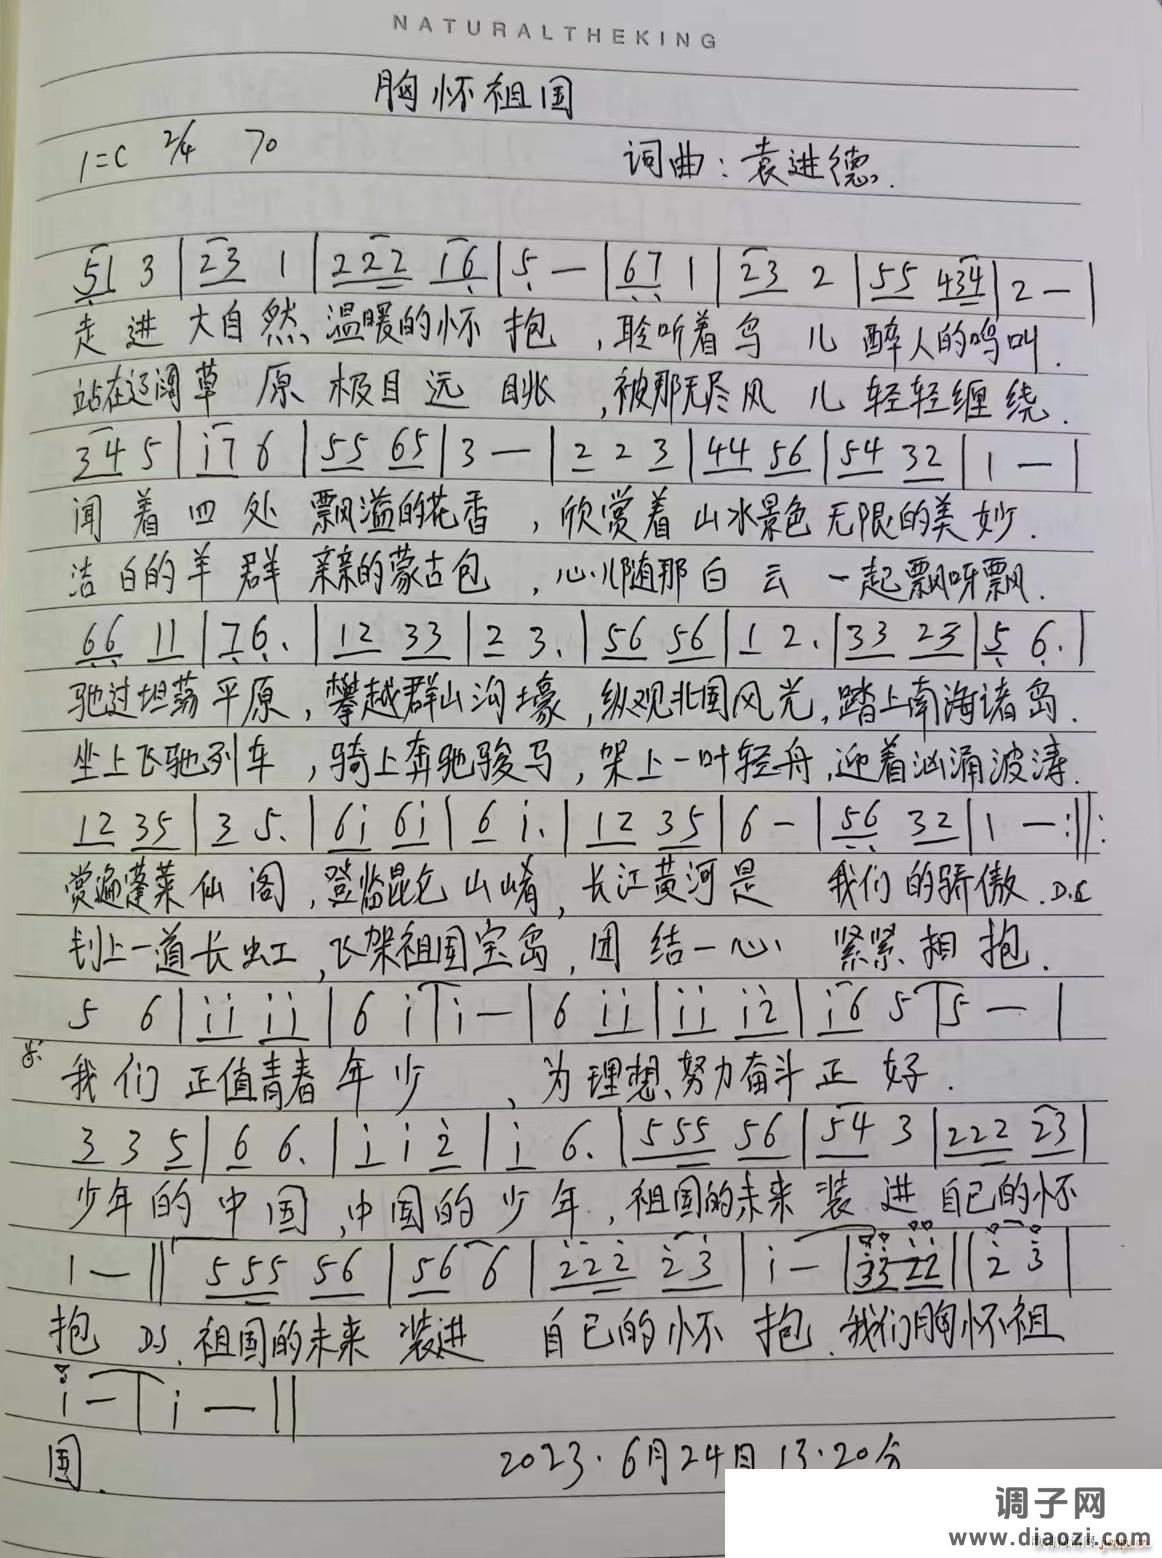 NATURALTHEKING
胸怀祖国
1=C 2/4 70 词曲：袁进德.
51 3 | 23 1 | 222 16 | 5 — | 67 1 | 23 2 | 55 434 | 2 — |
走进大自然温暖的怀抱，聆听着鸟儿醉人的鸣叫.
站在辽阔草原极目远眺，被那无尽风儿轻轻缠绕.
34 5 | i7 6 | 55 65 | 3 — | 2 2 3 | 44 56 | 54 32 | 1 — |
闻着四处飘溢的花香，欣赏着山水景色无限的美妙.
洁白的羊群亲亲的蒙古包，心儿随那白云一起飘呀飘.
66 11 | 76. | 12 33 | 2 3. | 56 56 | 1 2. | 33 23 | 5 6. |
驰过坦荡平原，攀越群山沟壕，纵观北国风光，踏上南海诸岛.
坐上飞驰列车，骑上奔驰骏马，架上一叶轻舟，迎着汹涌波涛.
12 35 | 3 5. | 6i 6i | 6 i. | 12 35 | 6 - | 56 32 | 1 — :||:
赏遍蓬莱仙阁，登临昆仑山崤，长江黄河是我们的骄傲. D.C
划上一道长虹，飞架祖国宝岛，团结一心紧紧相抱.
5 6 | ii ii | 6 i | i — | 6 ii | ii i2 | i6 5 | 5 — |
我们正值青春年少，为理想、努力奋斗正好.
3 3 5 | 6 6. | i i 2 | i 6. | 555 56 | 54 3 | 222 23 |
少年的中国，中国的少年，祖国的未来装进自己的怀
1 — || 555 56 | 56 6 | 222 23 | i — | 33 22 || 2 3 |
抱 D.S. 祖国的未来装进自己的怀抱.我们胸怀祖
i — | i — ||
国.
2023.6月24日13.20分
调子网
www.diaozi.com